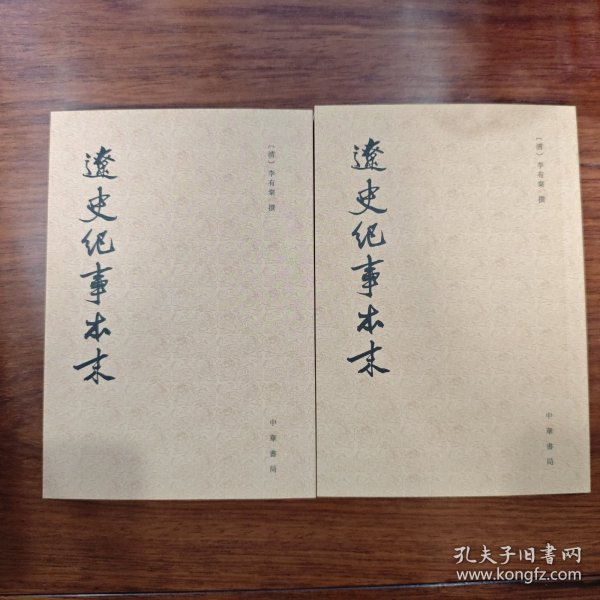 遼史紀事本末
〔清〕李有棠 撰
中華書局
遼史紀事本末
〔清〕李有棠 撰
中華書局
孔夫子旧书网
www.kongfz.com